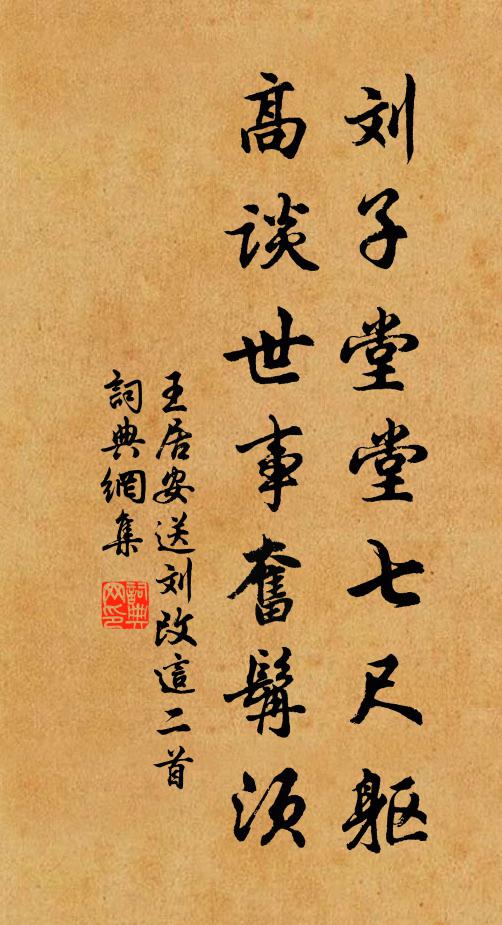 刘子堂堂七尺躯
高谈世事奮髯须
王居安送刘改這二首
詞典網集
詞典
网印